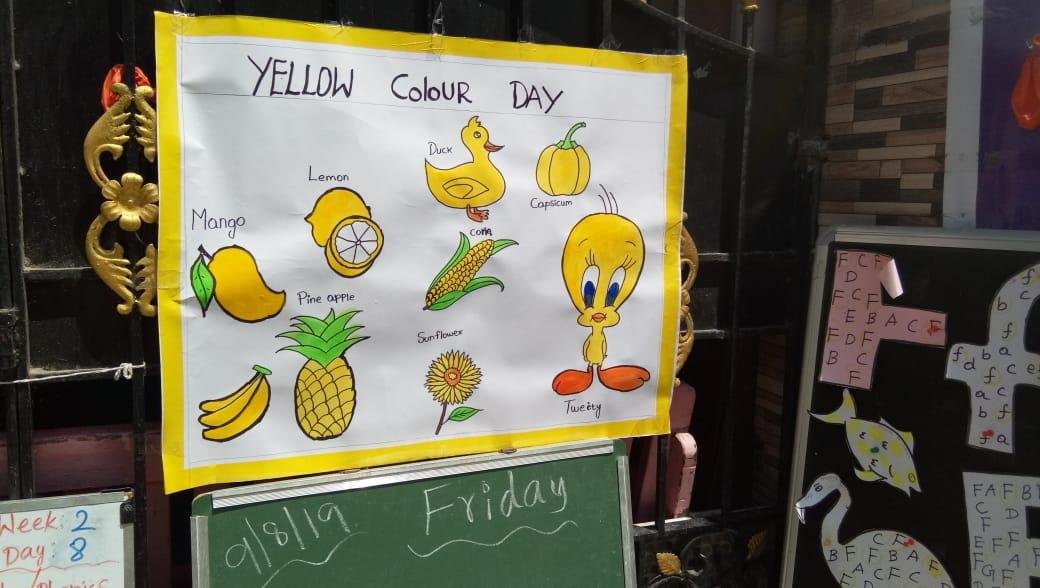 YELLOW COLOUR DAY
Duck
Capsicum
Lemon
Mango
Corn
Pine apple
Sunflower
Tweety
9/8/19 Friday
Week: 2
Day: 8
F C F
D
F C F
E B A C F
F D F
B C
F
f
b c
f
f d b a
f c e
a c
b f
f a
F A F B
C F D
F
E F A
F G F
C F
B F F B A F